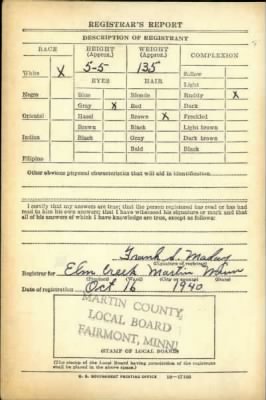 REGISTRAR'S REPORT
DESCRIPTION OF REGISTRANT
RACE HEIGHT (Approx.) WEIGHT (Approx.) COMPLEXION
White X 5-5 135 Sallow
EYES HAIR Light
Negro Blue Blonde Ruddy X
Gray X Red Dark
Oriental Hazel Brown X Freckled
Brown Black Light brown
Indian Black Gray Dark brown
Bald Black
Filipino
Other obvious physical characteristics that will aid in identification
I certify that my answers are true; that the person registered has read or has had read to him his own answers; that I have witnessed his signature or mark and that all of his answers of which I have knowledge are true, except as follows:
Frank S.
(Signature of registrar)
Registrar for Elm Creek Martin Minn
(City or county) (State)
Date of registration Oct 16 1940
MARTIN COUNTY
LOCAL BOARD
FAIRMONT, MINN.
(STAMP OF LOCAL BOARD)
(The stamp of the Local Board having jurisdiction of the registrant shall be placed in the above space.)
U. S. GOVERNMENT PRINTING OFFICE